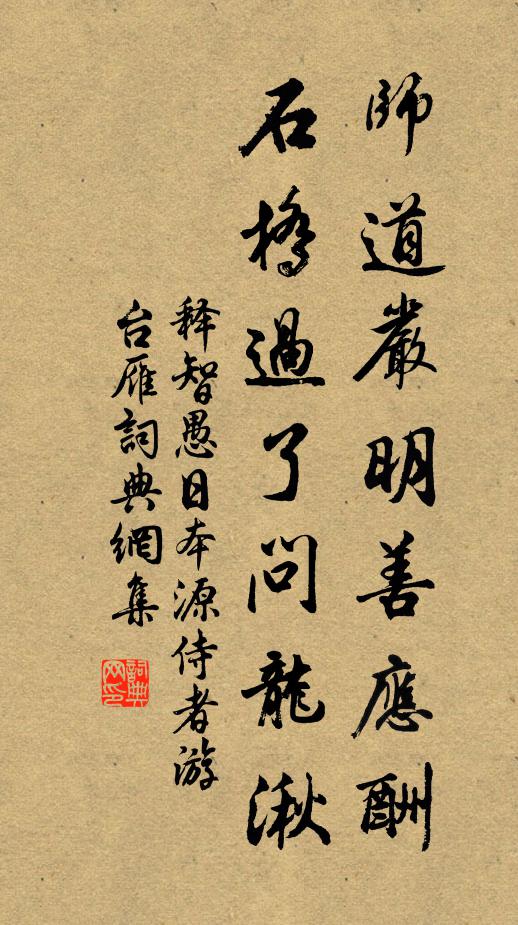 師道嚴明善應酬
石橋過了問龍湫
释智愚日本源侍者游
台雁詞典網集
詞典
网印